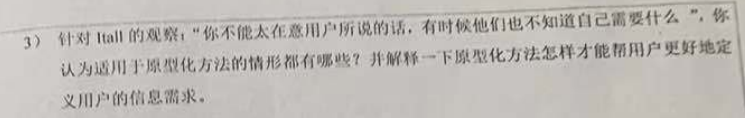 3） 针对 Itall 的观察：“你不能太在意用户所说的话，有时候他们也不知道自己需要什么 ”，你
认为适用于原型化方法的情形都有哪些？并解释一下原型化方法怎样才能帮用户更好地定
义用户的信息需求。